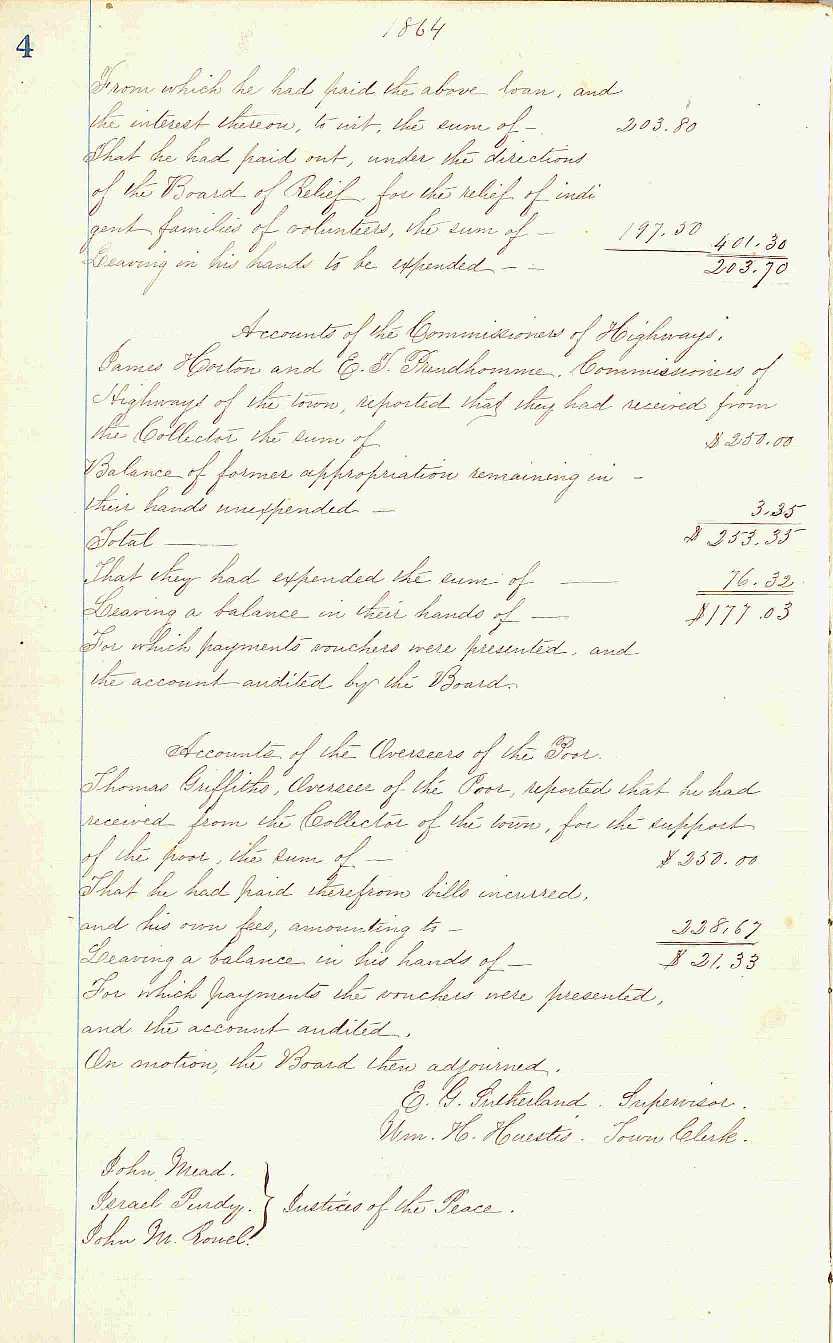 4
1864
From which he had paid the above loan, and
the interest thereon, to wit, the sum of - 203.80
That he had paid out, under the directions
of the Board of Relief, for the relief of indi
gent families of volunteers, the sum of - 197.50 401.30
Leaving in his hands to be expended - - 203.70
Accounts of the Commissioners of Highways.
James Horton and E. F. Prudhomme, Commissioners of
Highways of the town, reported that they had received from
the Collector the sum of $250.00
Balance of former appropriation remaining in -
their hands unexpended - 3.35
Total — $253.35
That they had expended the sum of — 76.32
Leaving a balance in their hands of — $177.03
For which payments vouchers were presented, and
the account audited by the Board.
Accounts of the Overseers of the Poor.
Thomas Griffiths, Overseer of the Poor, reported that he had
received from the Collector of the town, for the support
of the poor, the sum of - $250.00
That he had paid therefrom bills incurred,
and his own fees, amounting to - 228.67
Leaving a balance in his hands of - $21.33
For which payments the vouchers were presented,
and the account audited.
On motion, the Board then adjourned.
E. G. Sutherland. Supervisor.
Wm. H. Huestis. Town Clerk.
John Mead.
Israel Purdy. } Justices of the Peace.
John M. Rowel.